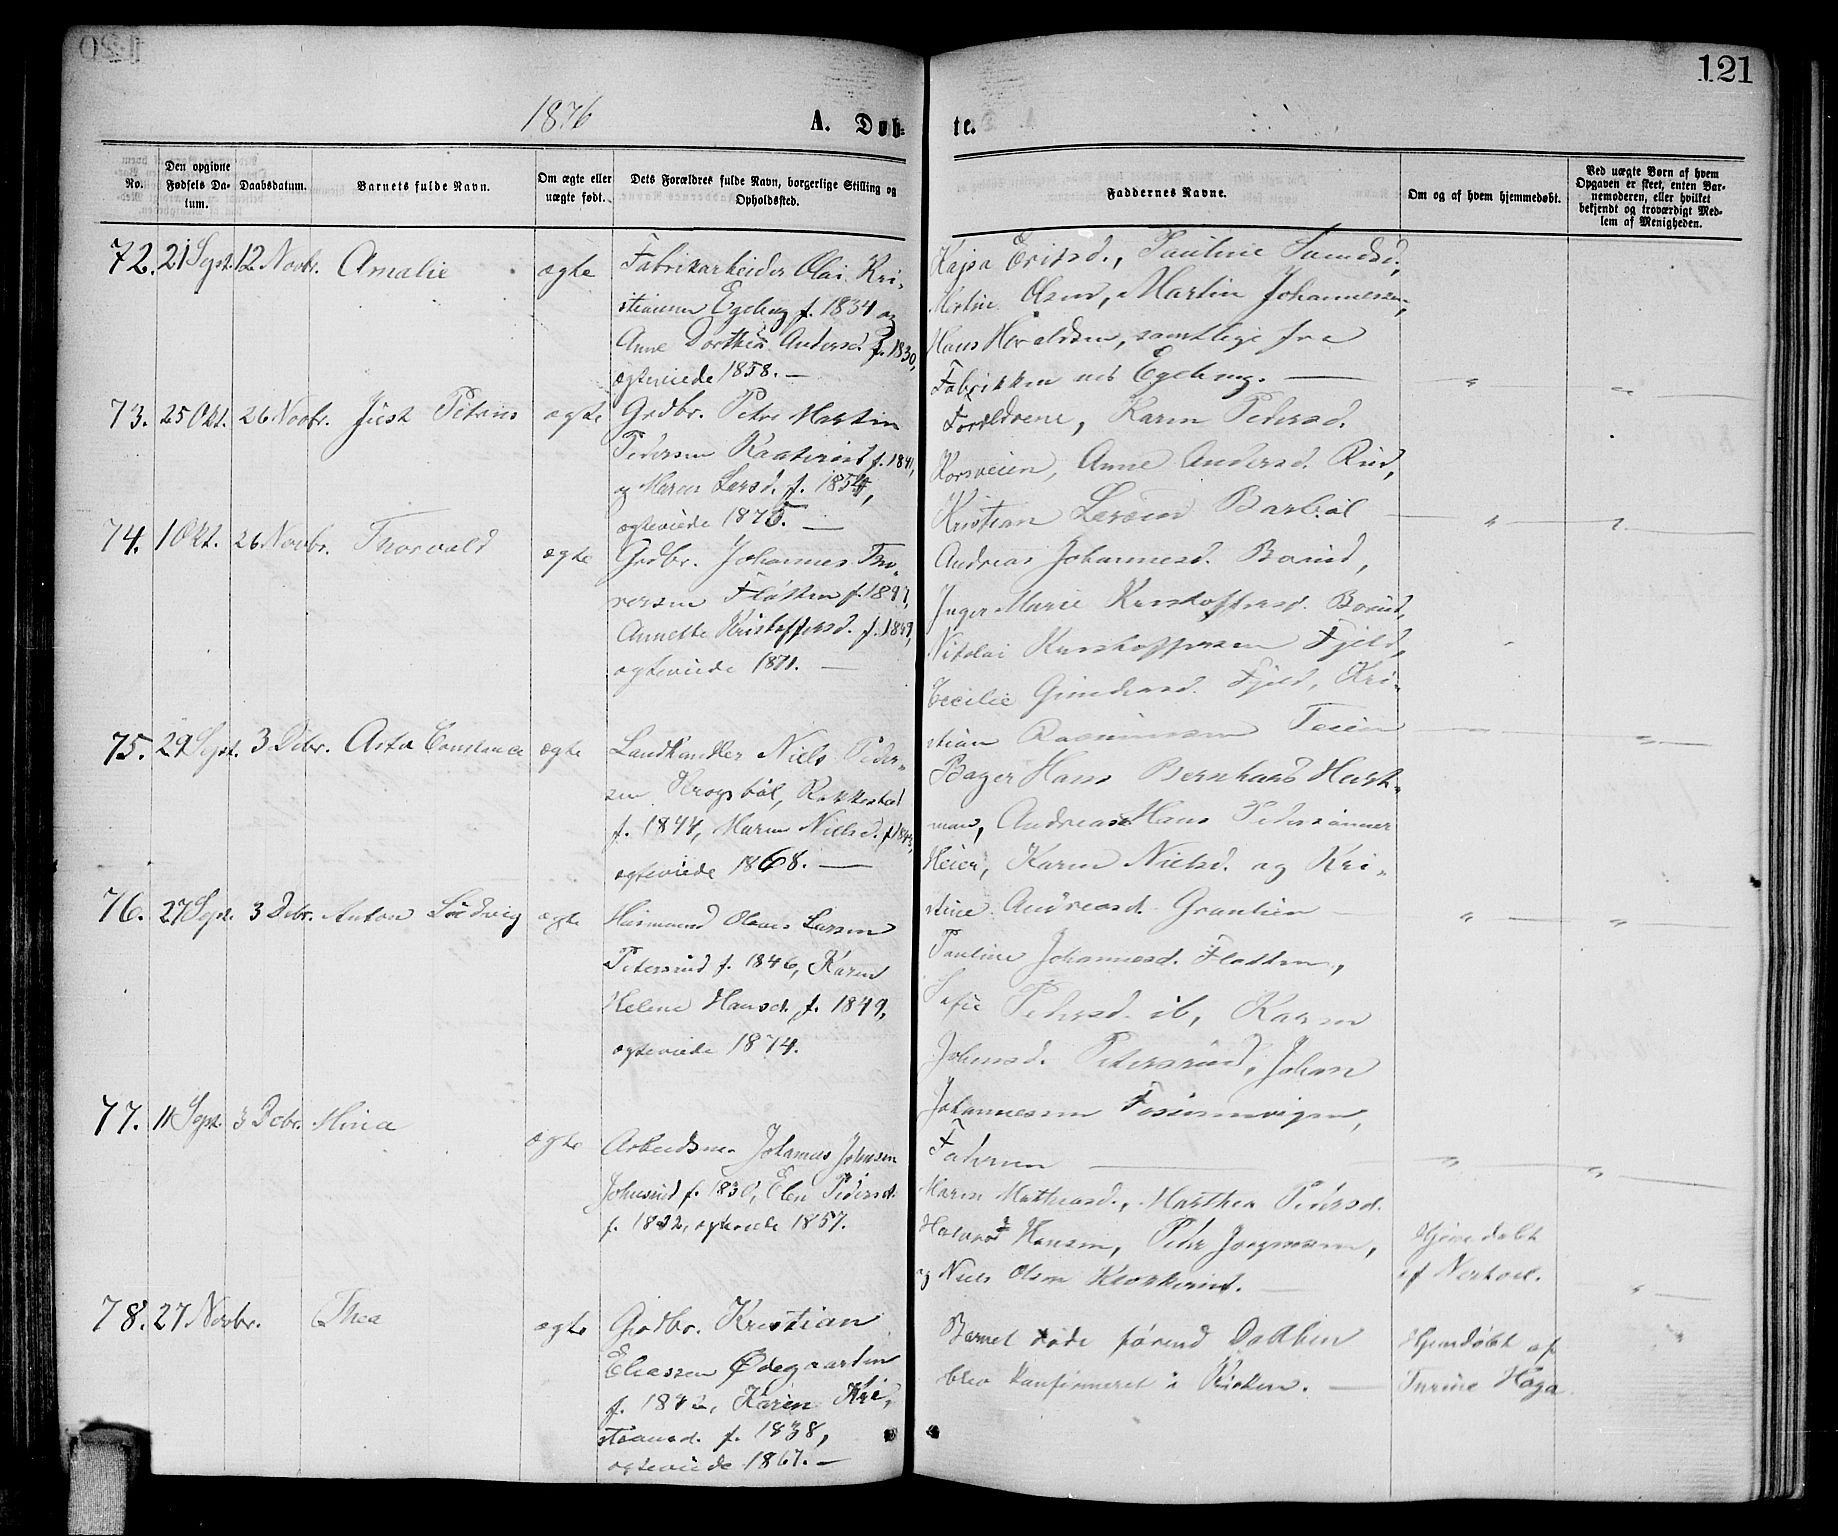 121
1876
A. Døb-
te.
No.
Den opgivne Fødsels Da-tum.
Daabsdatum.
Barnets fulde Navn.
Om ægte eller uægte født.
Dets Forældres fulde Navn, borgerlige Stilling og Opholdssted.
Faddernes Navne.
Om og af hvem hjemmedøbt.
Ved uægte Børn af hvem Opgaven er skeet, enten Bar-nemoderen, eller hvilket bekjendt og troværdigt Med-lem af Menigheden.
72. 21 Sept. 12 Novbr. Amalie ægte
Fabrikarbeider Olai Kri-
stiansen Egeling f. 1834 og
Anne Dorthea Andersd. f. 1830,
ægteviede 1858. —
Kajsa Eriksd., Pauline
Olsen, Martin Johannesen,
Hans samtlige fra
Fabrikken ved Egeling. — " "
73. 25 Okt. 26 Novbr. Petrus ægte
Grdbr. Peter Martin
Pedersen f. 1841,
og Maren Larsd. f. 1854,
ægteviede 1875. —
Forældrene, Karen Pedersd.
Korsveien, Anne Andersd. Rud,
Kristian Larsen Barbøl — " "
74. 1 Okt. 26 Novbr. Thorvald ægte
Grdbr. Johannes
Fløtten f. 1847,
Annette Kristoffersd. f. 1849,
ægteviede 1871. —
Andreas Johannesd. Borud,
Inger Marie Kristoffersd. Borud,
Nikolai Kristoffersen Fjeld,
Cecilie Gundersd. Fjeld, Kri-
stian Rasmussen Teien — " "
75. 29 Sept. 3 Debr. Asta Constance ægte
Landhandler Niels Peder-
sen Krogsbøl, Rakkestad
f. 1844, Maren Nielsd. f. 1843,
ægteviede 1868. —
Bager Hans Bernhard Hart-
man, Andreas Hans Pedersønner
Heier, Karen Nielsd. og Kri-
stine Andreasd. Granlien — " "
76. 27 Sept. 3 Debr. Anton Ludvig ægte
Husmand Olaus Larsen
Petersrud f. 1846, Karen
Helene Hansd. f. 1849,
ægteviede 1874.
Pauline Johannesd. Flatten,
Sofie Pedersd. ib, Karen
Johnsd. Petersrud, Johan
Johannesen Fossumvigen,
Faderen — " "
77. 11 Sept. 3 Debr. Mina ægte
Arbeidsm. Johannes Johnsen
Johnsrud f. 1830, Elen Pedersd.
f. 1832, ægteviede 1857.
Maren Mathiasd., Marthea Pedersd.
Halvor Hansen, Peder Jørgensen,
og Niels Olsen Klokkerud. —
Hjemedøbt
af "
78. 27 Novbr. Thea ægte
Grdbr. Kristian
Eliassen Ødegaarden
f. 1842, Karen Kri-
stiansd. f. 1838,
ægteviede 1867. —
Barnet døde førend Daaben
blev konfirmeret i Kirken. —
Hjemdøbt af
Haga "